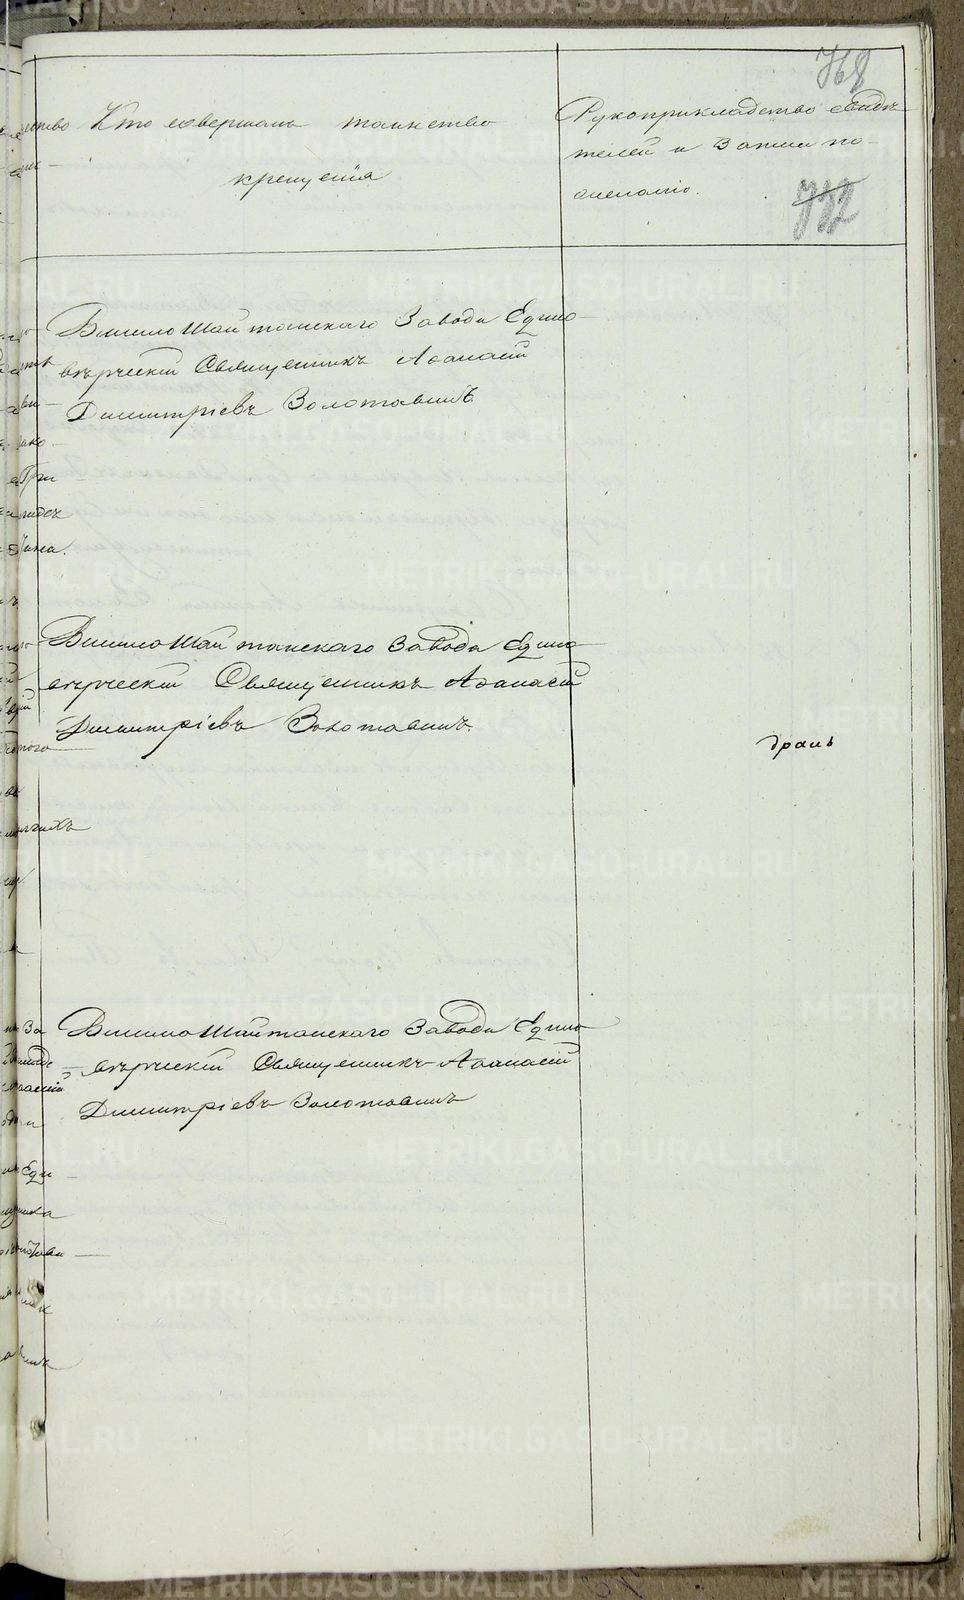 768
Кто совершалъ таинство
крещенія
Рукоприкладство свидѣ
телей и записи по
желанію.
772
ВисимоШайтанскаго Завода Едино
вѣрческій Священникъ Афанасій
Димитріевъ Золотавинъ
ВисимоШайтанскаго Завода Едино
вѣрческій Священникъ Афанасій
Димитріевъ Золотавинъ.
ВисимоШайтанскаго Завода Едино
вѣрческій Священникъ Афанасій
Димитріевъ Золотавинъ
METRIKI.GASO-URAL.RU